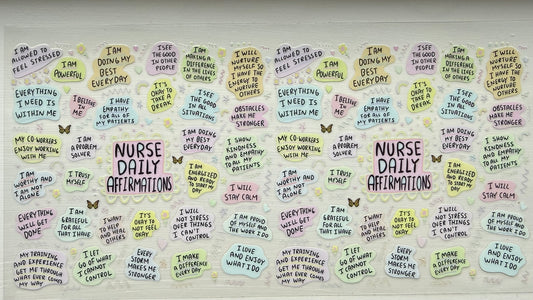 I AM
ALLOWED TO
FEEL STRESSED
I AM
POWERFUL
I AM
DOING MY
BEST
EVERYDAY
I SEE
THE GOOD
IN OTHER
PEOPLE
I AM
MAKING A
DIFFERENCE
IN THE LIVES
OF OTHERS
I WILL
NURTURE
MYSELF SO
I HAVE THE
ENERGY TO
NURTURE
OTHERS
EVERYTHING
I NEED IS
WITHIN ME
I BELIEVE
IN
ME
I HAVE
EMPATHY
FOR ALL OF
MY PATIENTS
IT'S
OKAY TO
TAKE A
BREAK
I SEE
THE GOOD
IN ALL
SITUATIONS
OBSTACLES
MAKE ME
STRONGER
MY CO-WORKERS
ENJOY WORKING
WITH ME
I AM
A PROBLEM
SOLVER
NURSE
DAILY
AFFIRMATIONS
I AM DOING
MY BEST
EVERYDAY
I SHOW
KINDNESS
AND EMPATHY
TO ALL MY
PATIENTS
I AM
WORTHY AND
I AM NOT
ALONE
I TRUST
MYSELF
I AM
ENERGIZED
AND READY
TO START MY
DAY
I WILL
STAY CALM
EVERYTHING
WILL GET
DONE
I AM
GRATEFUL
FOR ALL
THAT I HAVE
I WANT
TO HELP
AND HEAL
OTHERS
IT'S
OKAY TO
NOT FEEL
OKAY
I WILL
NOT STRESS
OVER THINGS
I CAN'T
CONTROL
I AM PROUD
OF MYSELF
AND THE
WORK I DO
MY TRAINING
AND EXPERIENCE
GET ME THROUGH
WHAT EVER COMES
MY WAY
I LET
GO OF WHAT
I CANNOT
CONTROL
EVERY
STORM
MAKES ME
STRONGER
I MAKE
A DIFFERENCE
EVERY DAY
I LOVE
AND ENJOY
WHAT I DO
I AM
ALLOWED TO
FEEL STRESSED
I AM
POWERFUL
I AM
DOING MY
BEST
EVERYDAY
I SEE
THE GOOD
IN OTHER
PEOPLE
I AM
MAKING A
DIFFERENCE
IN THE LIVES
OF OTHERS
I WILL
NURTURE
MYSELF SO
I HAVE THE
ENERGY TO
NURTURE
OTHERS
EVERYTHING
I NEED IS
WITHIN ME
I BELIEVE
IN
ME
I HAVE
EMPATHY
FOR ALL OF
MY PATIENTS
IT'S
OKAY TO
TAKE A
BREAK
I SEE
THE GOOD
IN ALL
SITUATIONS
OBSTACLES
MAKE ME
STRONGER
MY CO-WORKERS
ENJOY WORKING
WITH ME
I AM
A PROBLEM
SOLVER
NURSE
DAILY
AFFIRMATIONS
I AM DOING
MY BEST
EVERYDAY
I SHOW
KINDNESS
AND EMPATHY
TO ALL MY
PATIENTS
I AM
WORTHY AND
I AM NOT
ALONE
I TRUST
MYSELF
I AM
ENERGIZED
AND READY
TO START MY
DAY
I WILL
STAY CALM
EVERYTHING
WILL GET
DONE
I AM
GRATEFUL
FOR ALL
THAT I HAVE
I WANT
TO HELP
AND HEAL
OTHERS
IT'S
OKAY TO
NOT FEEL
OKAY
I WILL
NOT STRESS
OVER THINGS
I CAN'T
CONTROL
I AM PROUD
OF MYSELF
AND THE
WORK I DO
MY TRAINING
AND EXPERIENCE
GET ME THROUGH
WHAT EVER COMES
MY WAY
I LET
GO OF WHAT
I CANNOT
CONTROL
EVERY
STORM
MAKES ME
STRONGER
I MAKE
A DIFFERENCE
EVERY DAY
I LOVE
AND ENJOY
WHAT I DO